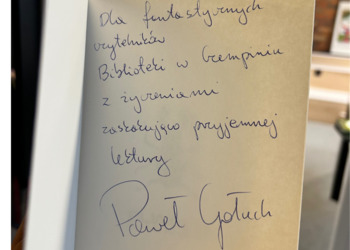 Dla fantastycznych
czytelników
Biblioteki w Czempiniu
z życzeniami
zaskakująco przyjemnej
lektury
Paweł Gołuch